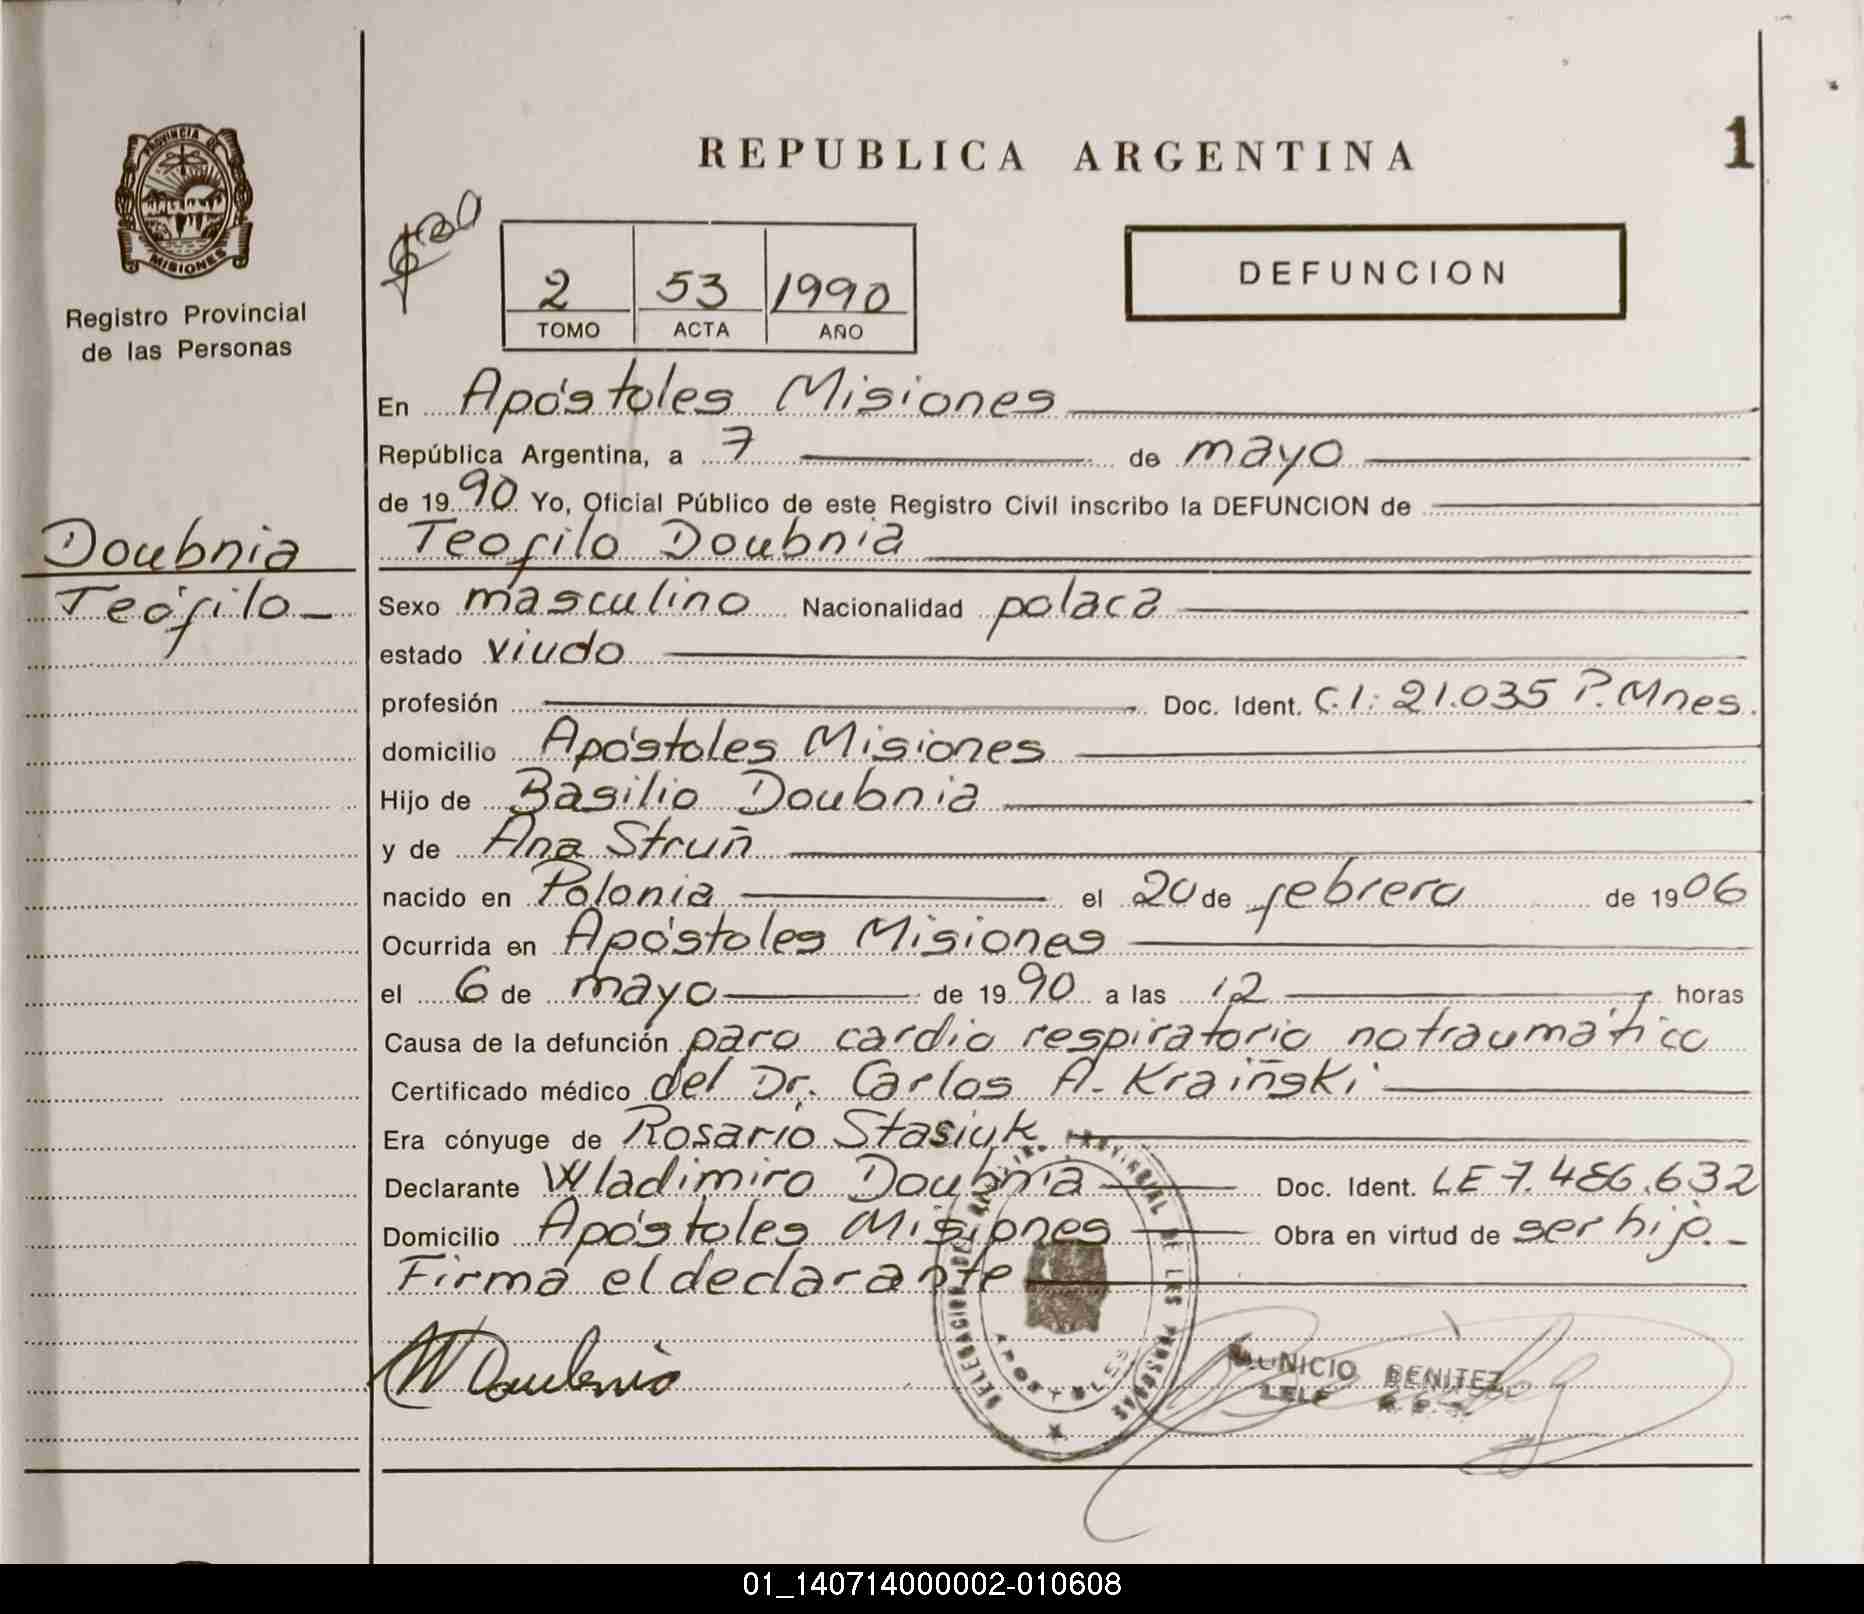 REPUBLICA ARGENTINA
1
PROVINCIA DE
MISIONES
Registro Provincial
de las Personas
2 53 1990
TOMO ACTA AÑO
DEFUNCION
En Apóstoles Misiones
República Argentina, a 7 de mayo
de 1990 Yo, Oficial Público de este Registro Civil inscribo la DEFUNCION de
Doubnia
Teófilo
Teofilo Doubnia
Sexo masculino Nacionalidad polaca
estado viudo
profesión Doc. Ident. C.I: 21.035 P. Mnes.
domicilio Apóstoles Misiones
Hijo de Basilio Doubnia
y de Ana Struñ
nacido en Polonia el 20 de febrero de 1906
Ocurrida en Apóstoles Misiones
el 6 de mayo de 1990 a las 12 horas
Causa de la defunción paro cardio respiratorio no traumático
Certificado médico del Dr. Carlos A. Kraiñski
Era cónyuge de Rosario Stasiuk
Declarante Wladimiro Doubnia Doc. Ident. LE 7.486.632
Domicilio Apóstoles Misiones Obra en virtud de ser hijo.
Firma el declarante
W Doubnia
APOSTOLES
BENITEZ
01_140714000002-010608